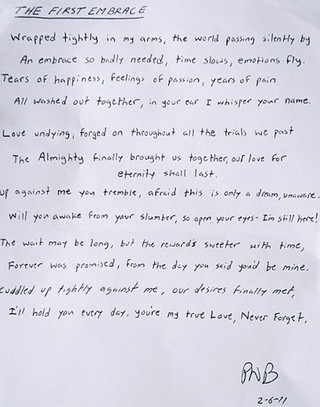 THE FIRST EMBRACE
Wrapped tightly in my arms, the world passing silently by
An embrace so badly needed, time slows, emotions fly.
Tears of happiness, feelings of passion, years of pain
All washed out together, in your ear I whisper your name.
Love undying, forged on throughout all the trials we past
The Almighty finally brought us together, our love for
eternity shall last.
up against me you tremble, afraid this is only a dream, unaware.
Will you awake from your slumber, so open your eyes- I'm still here!
The wait may be long, but the reward's sweeter with time,
Forever was promised, from the day you said you'd be mine.
cuddled up tightly against me, our desires finally met,
I'll hold you every day, you're my true Love, Never Forget.
PNB
2-6-11